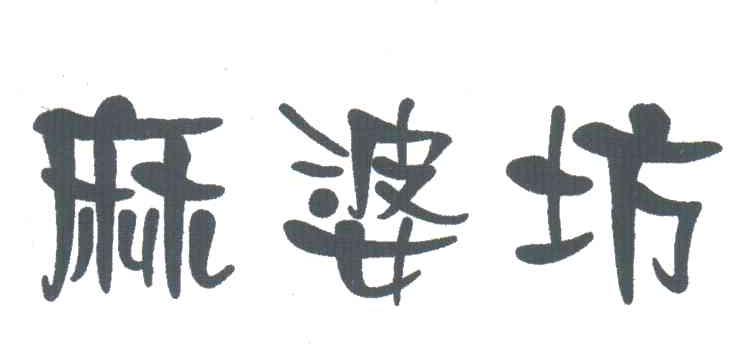 麻婆坊